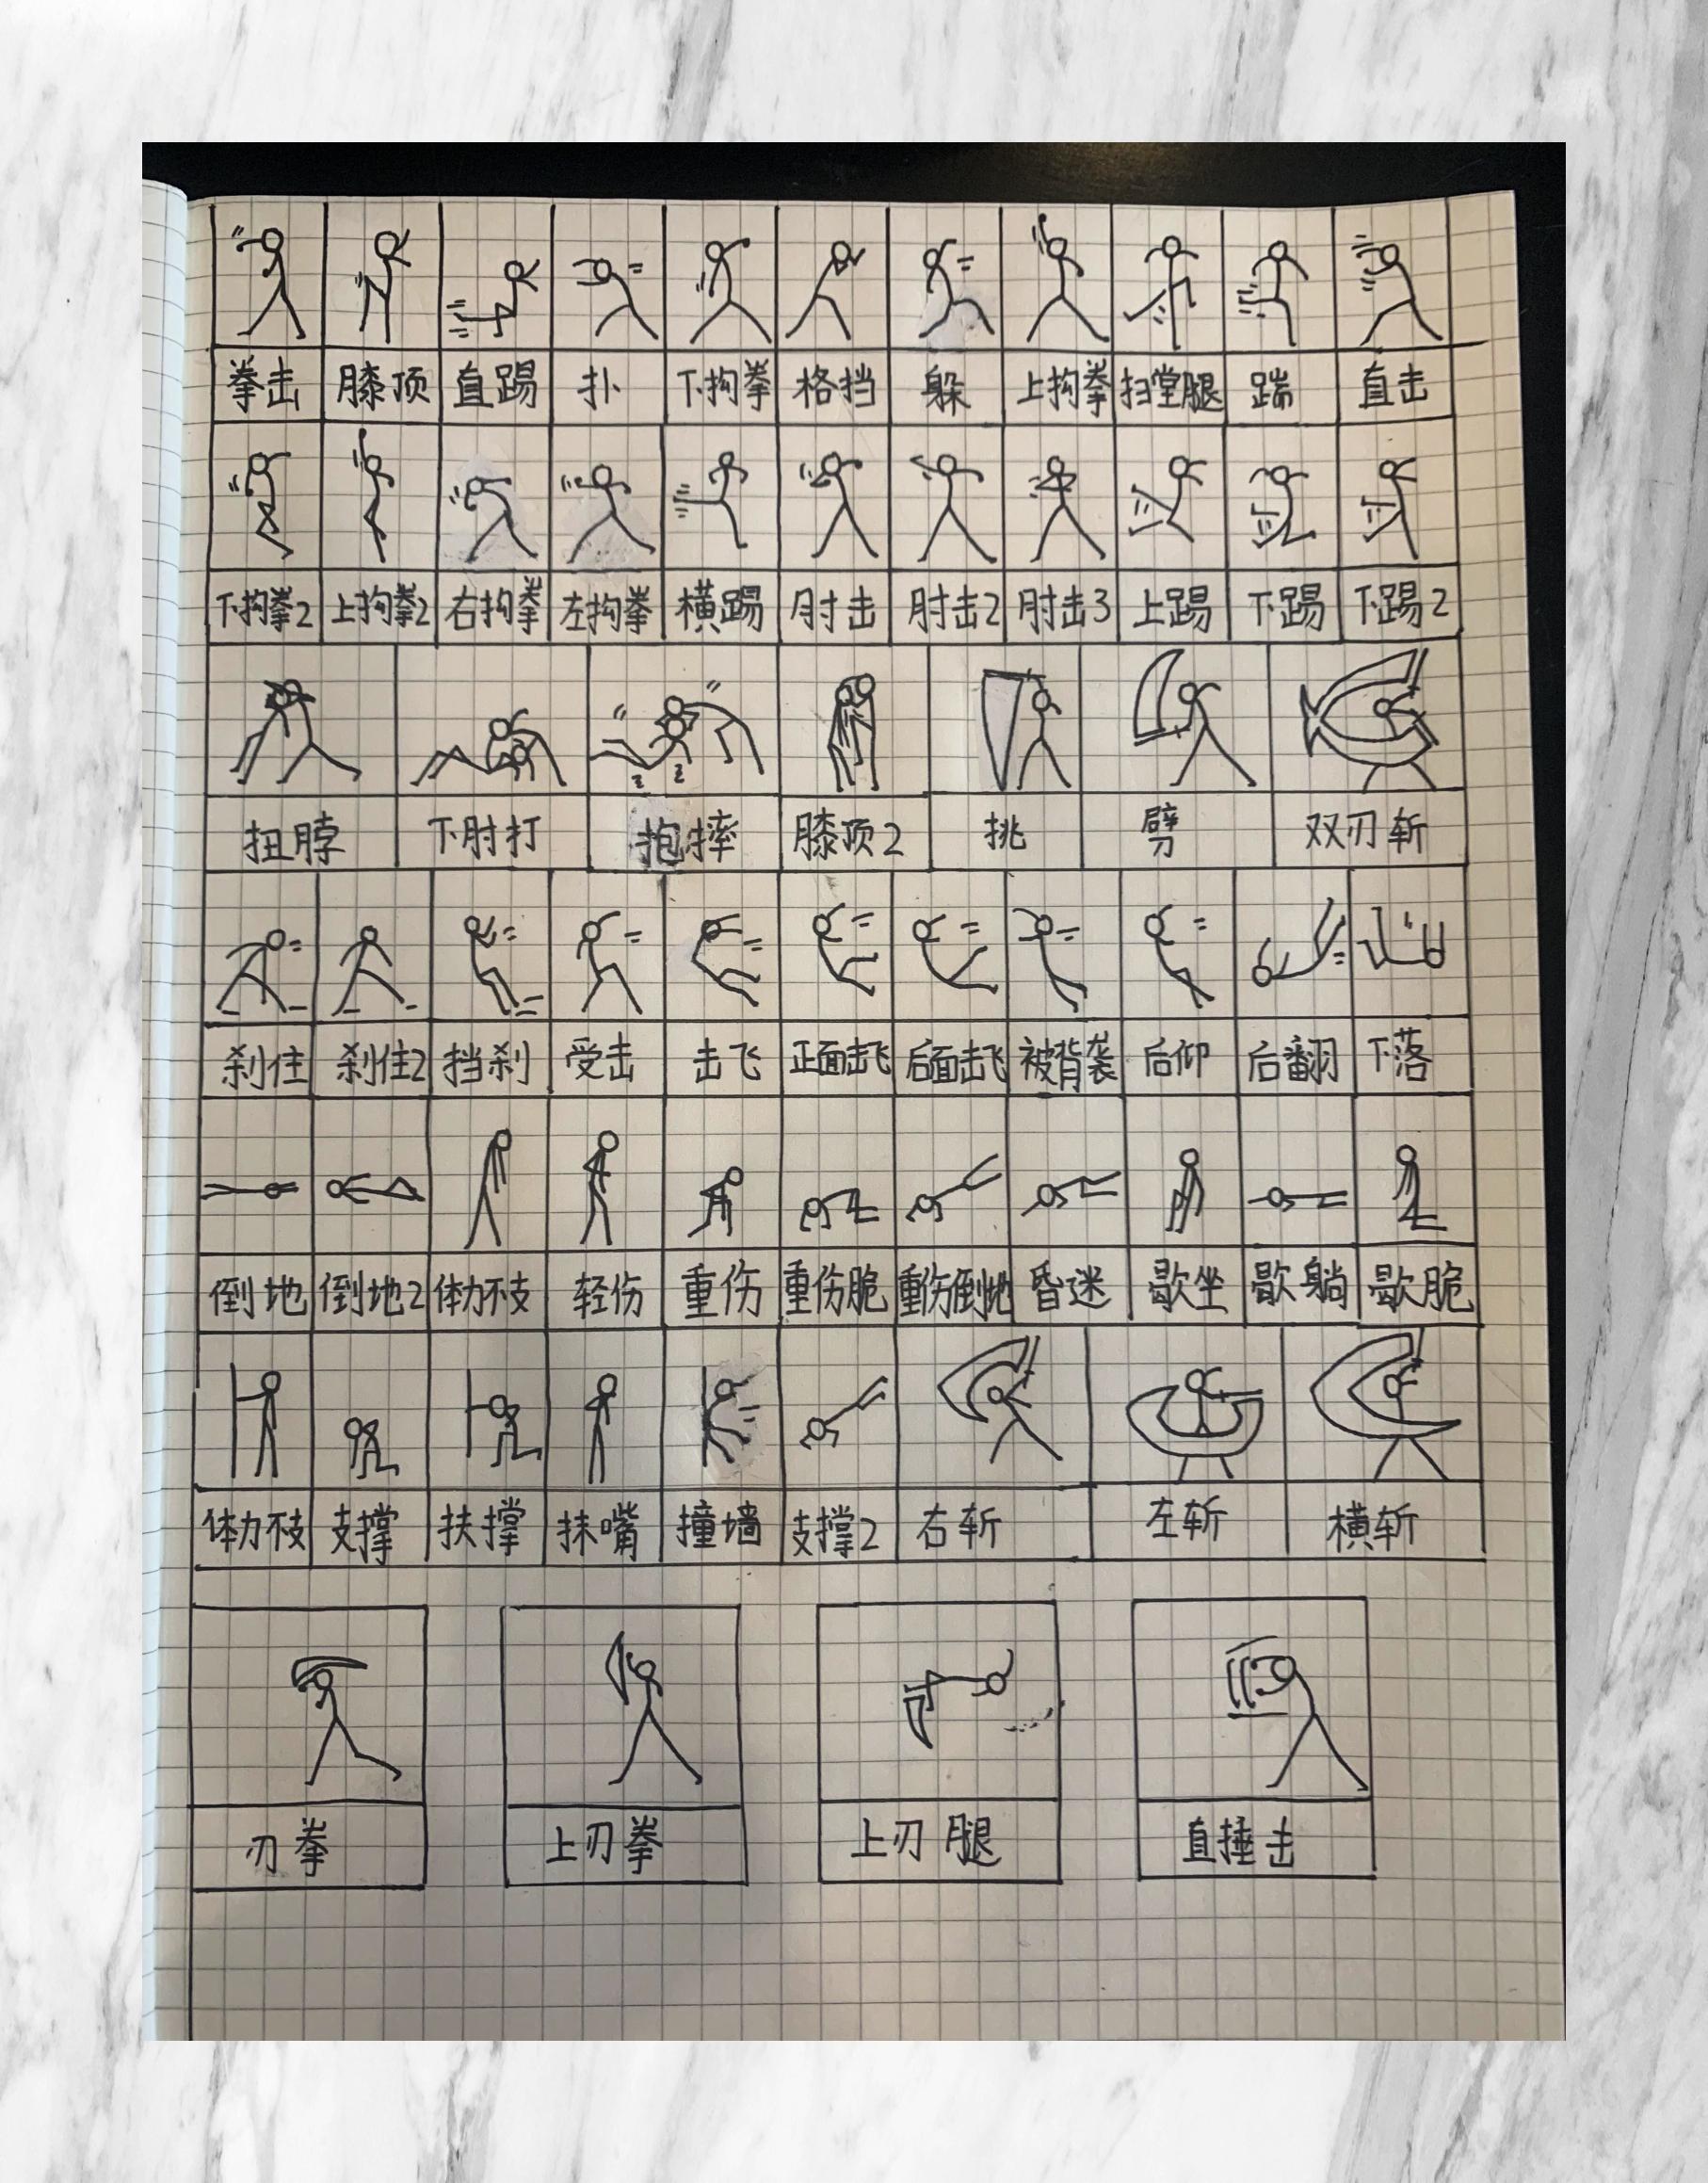 拳击 膝顶 直踢 扑 下抅拳 格挡 躲 上抅拳 扫堂腿 踹 直击
下抅拳2 上抅拳2 右抅拳 左抅拳 横踢 肘击 肘击2 肘击3 上踢 下踢 下踢2
扭脖 下肘打 抱摔 膝顶2 挑 劈 双刃斩
刹住 刹住2 挡刹 受击 击飞 正面击飞 后面击飞 被背袭 后仰 后翻 下落
倒地 倒地2 体力不支 轻伤 重伤 重伤脆 重伤倒地 昏迷 歇坐 歇躺 歇脆
体力不支 支撑 扶撑 抹嘴 撞墙 支撑2 右斩 左斩 横斩
刃拳 上刃拳 上刃腿 直捶击